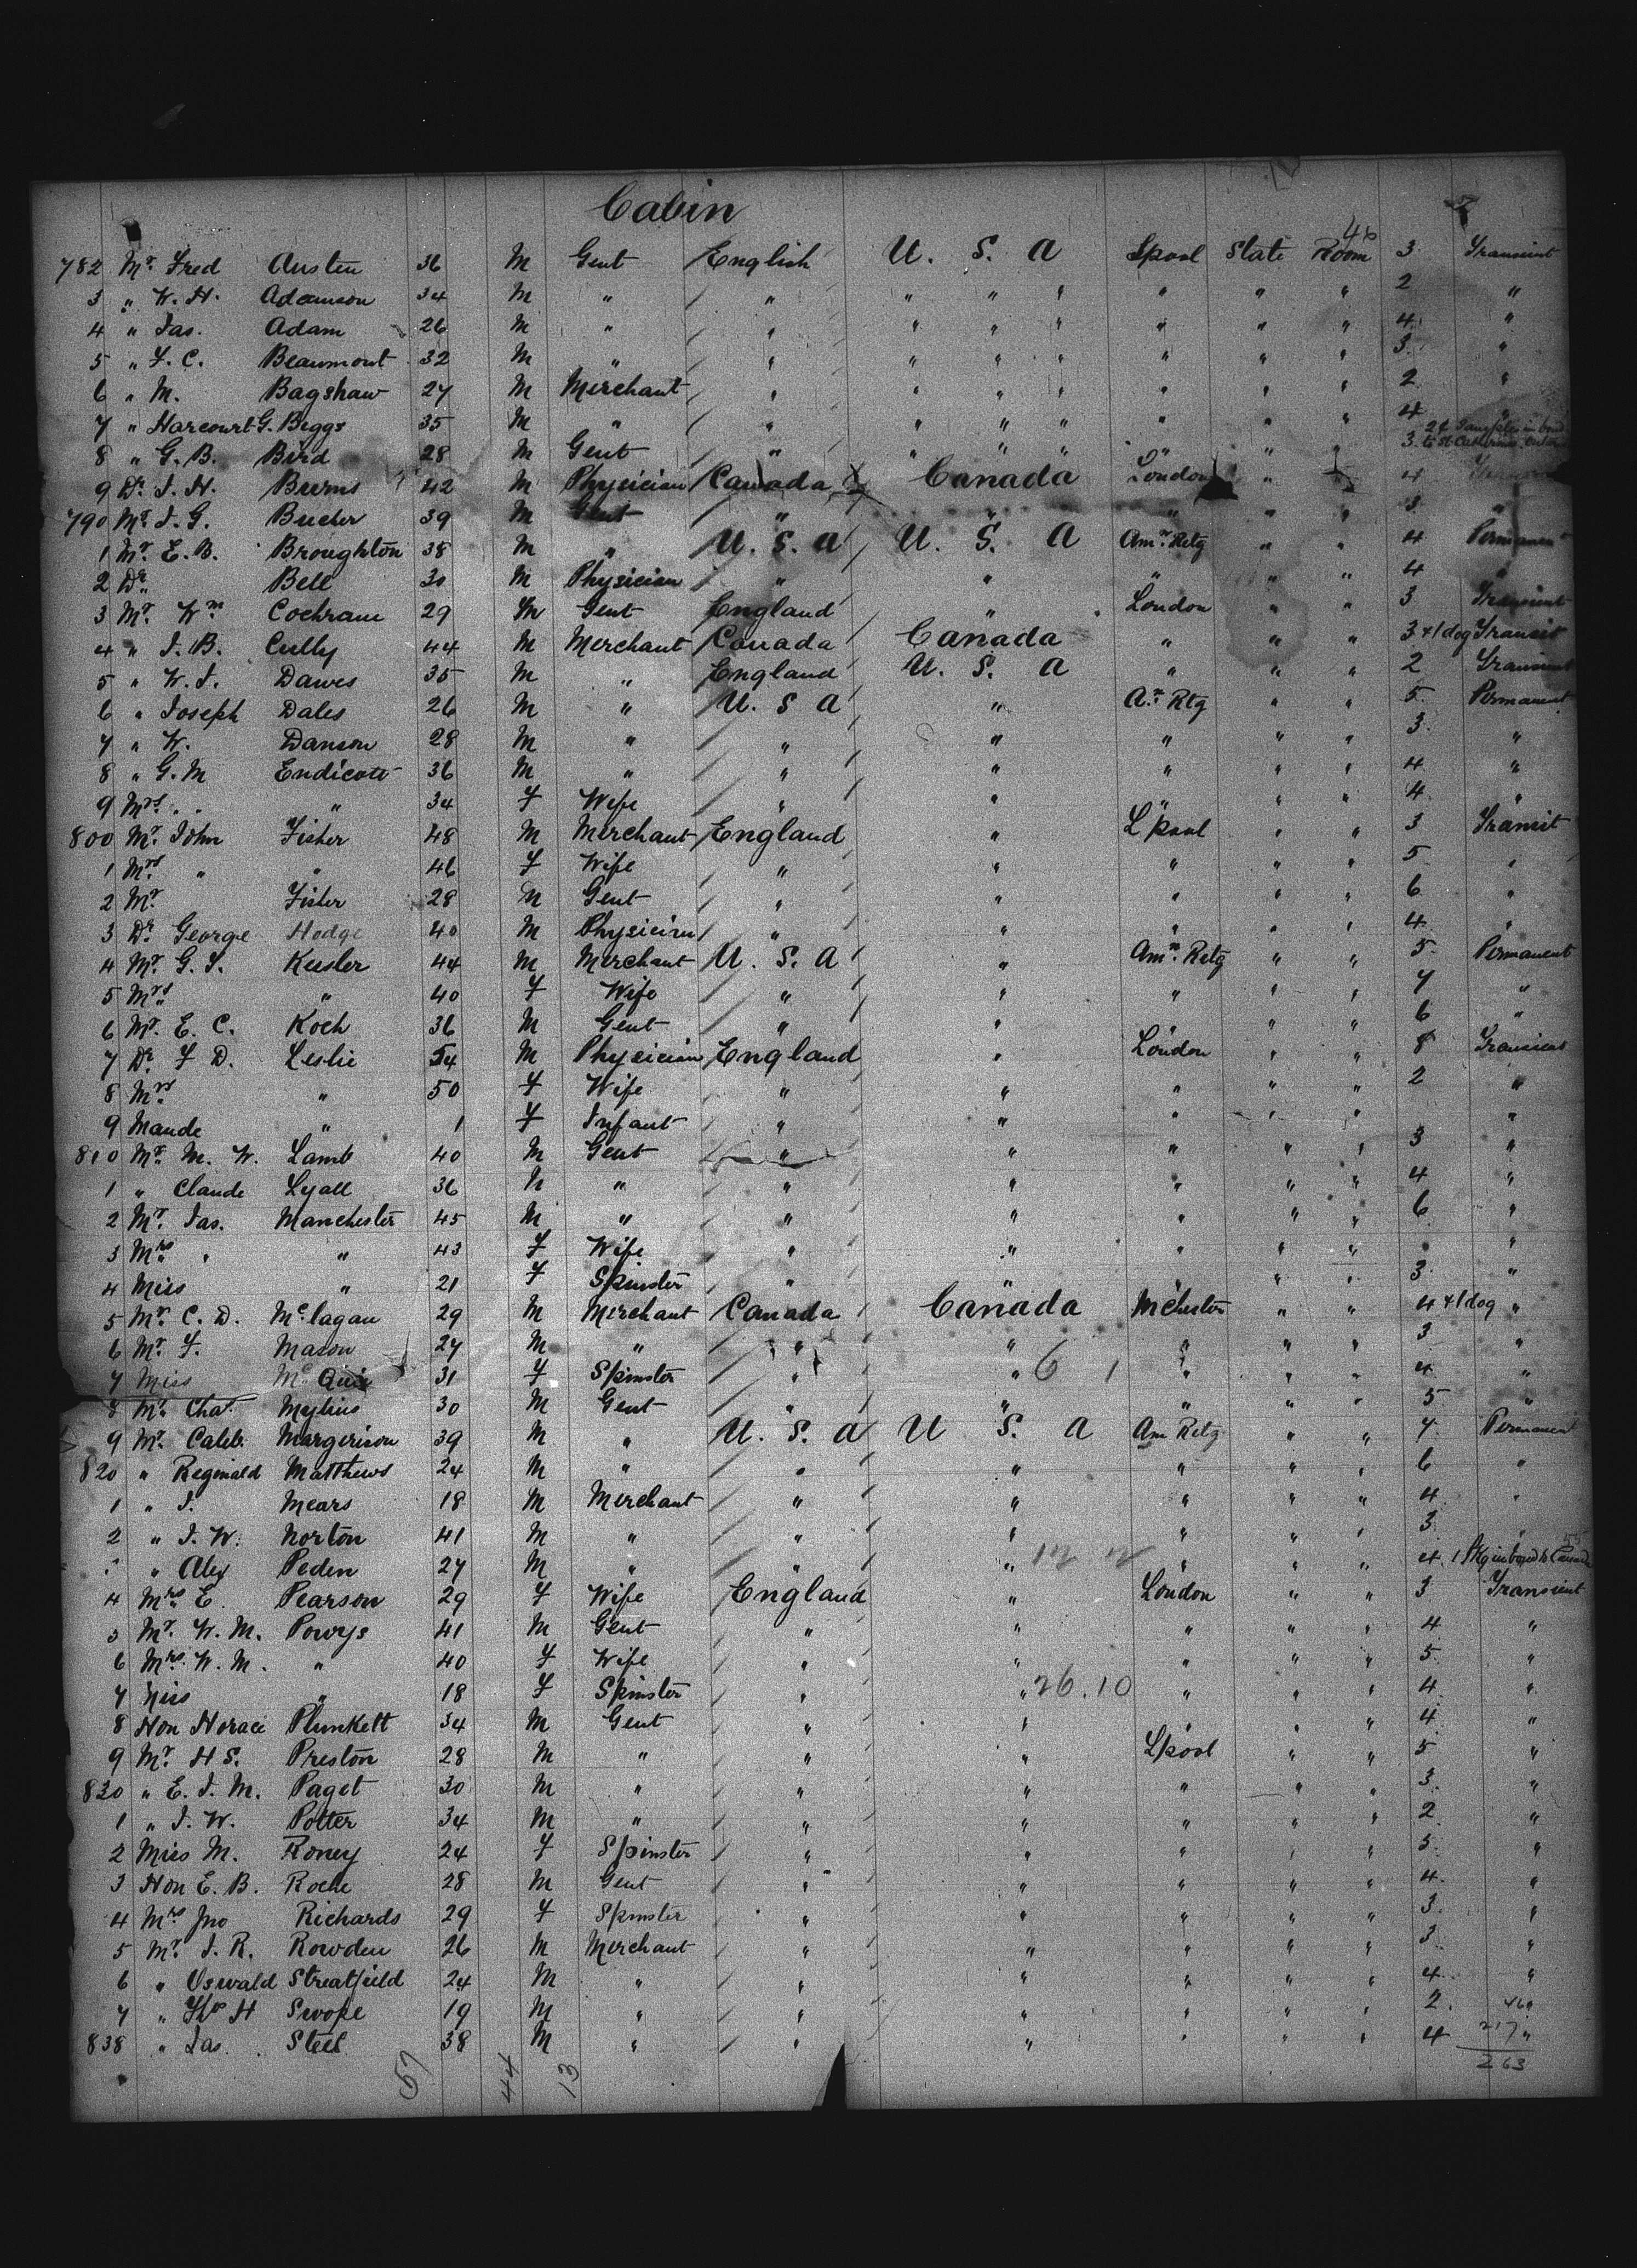 Cabin
46
782 Mr. Fred Austen 36 M Gent English U. S. A Lpool State Room 3 Transient
3 " W. H. Adamson 34 M " " " " " " " " 2 "
4 " Jas. Adam 26 M " " " " " " " " 4 "
5 " F. C. Beaumont 32 M " " " " " " " " 3 "
6 " M. Bagshaw 27 M Merchant " " " " " " " 2 "
7 " Harcourt G. Beggs 35 M " " " " " " " " 4
8 " G. B. Bird 28 M Gent " " " " " " " 3
9 Dr. J. H. Burns 42 M Physician Canada Canada London " " 4
790 Mr. J. G. Bucher 39 M Gent " " " " " 3 "
1 Mr. E. B. Broughton 38 M " U. S. A U. S. A Amn. Retg " " 4 Permanent
2 Dr. Bell 30 M Physician " " " " " 4 "
3 Mr. Wm Cochrane 29 M Gent England " London " " 3 Transient
4 " J. B. Cully 44 M Merchant Canada Canada " " " 3 +1 dog Transit
5 " W. J. Dawes 35 M " England U. S. A " " " 2 Transient
6 " Joseph Dales 26 M " U. S A " An. Rtg " " 5 Permanent
7 " W. Danson 28 M " " " " " " 3 "
8 " G. M Endicott 36 M " " " " " " 4 "
9 Mrs. " " 34 F Wife " " " " " 4 "
800 Mr. John Fisher 48 M Merchant England " L'pool " " 3 Transit
1 Mrs " " 46 F Wife " " " " " 5 "
2 Mr. Fisher 28 M Gent " " " " " 6 "
3 Dr. George Hodge 40 M Physician " " " " " 4 "
4 Mr. G. S. Keesler 44 M Merchant U. S. A " Amn. Retg " " 5 Permanent
5 Mrs " 40 F Wife " " " " " 7 "
6 Mr. E. C. Koch 36 M Gent " " " " " 6 "
7 Dr F D. Leslie 54 M Physician England " London " " 8 Transient
8 Mrs " 50 F Wife " " " " " 2 "
9 Maude " 1 F Infant " " " " " "
810 Mr. M. W. Lamb 40 M Gent " " " " " 3 "
1 " Claude Lyall 36 M " " " " " " 4 "
2 Mr. Jas. Manchester 45 M " " " " " " 6 "
3 Mrs " " 43 F Wife " " " " " "
4 Miss " 21 F Spinster " " " " " 3 "
5 Mr. C. D. McLagan 29 M Merchant Canada Canada Mchester " " 4 +1 dog "
6 Mr. F. Mason 27 M " " " " " " 3 "
7 Miss 31 F Spinster " " 6 1 " " " 4 "
8 Mr. Chas. Mylius 30 M Gent " " " " " 5 "
9 Mr. Caleb Margerison 39 M " U. S. A U S. A Am Retg " " 7 Permanent
820 " Reginald Matthews 24 M " " " " " " 6 "
1 " J. Mears 18 M Merchant " " " " " 4 "
2 " J. W. Norton 41 M " " " " " " 3 "
" Alex Peden 27 M " " " " " " 4
4 Mrs E. Pearson 29 F Wife England " London " " 3 Transient
5 Mr. W. M. Powys 41 M Gent " " " " " 4 "
6 Mrs. W. M. " 40 F Wife " " " " " 5 "
7 Miss " 18 F Spinster " " 26.10 " " " 4 "
8 Hon Horace Plunkett 34 M Gent " " " " " 4 "
9 Mr. H S. Preston 28 M " " " Lpool " " 5 "
830 " E. J. M. Paget 30 M " " " " " " 3 "
1 " J. W. Potter 34 M " " " " " " 2 "
2 Miss M. Roney 24 F Spinster " " " " " 5 "
3 Hon E. B. Roche 28 M Gent " " " " " 4 "
4 Mrs Jno Richards 29 F Spinster " " " " " 3 "
5 Mr. J. R. Rowden 26 M Merchant " " " " " 3 "
6 " Oswald Streatfield 24 M " " " " " " 4 "
7 " Thos H Swope 19 M " " " " " " 2 46
838 " Jas. Steel 38 M " " " " " " 4 217 "
57 44 13 263